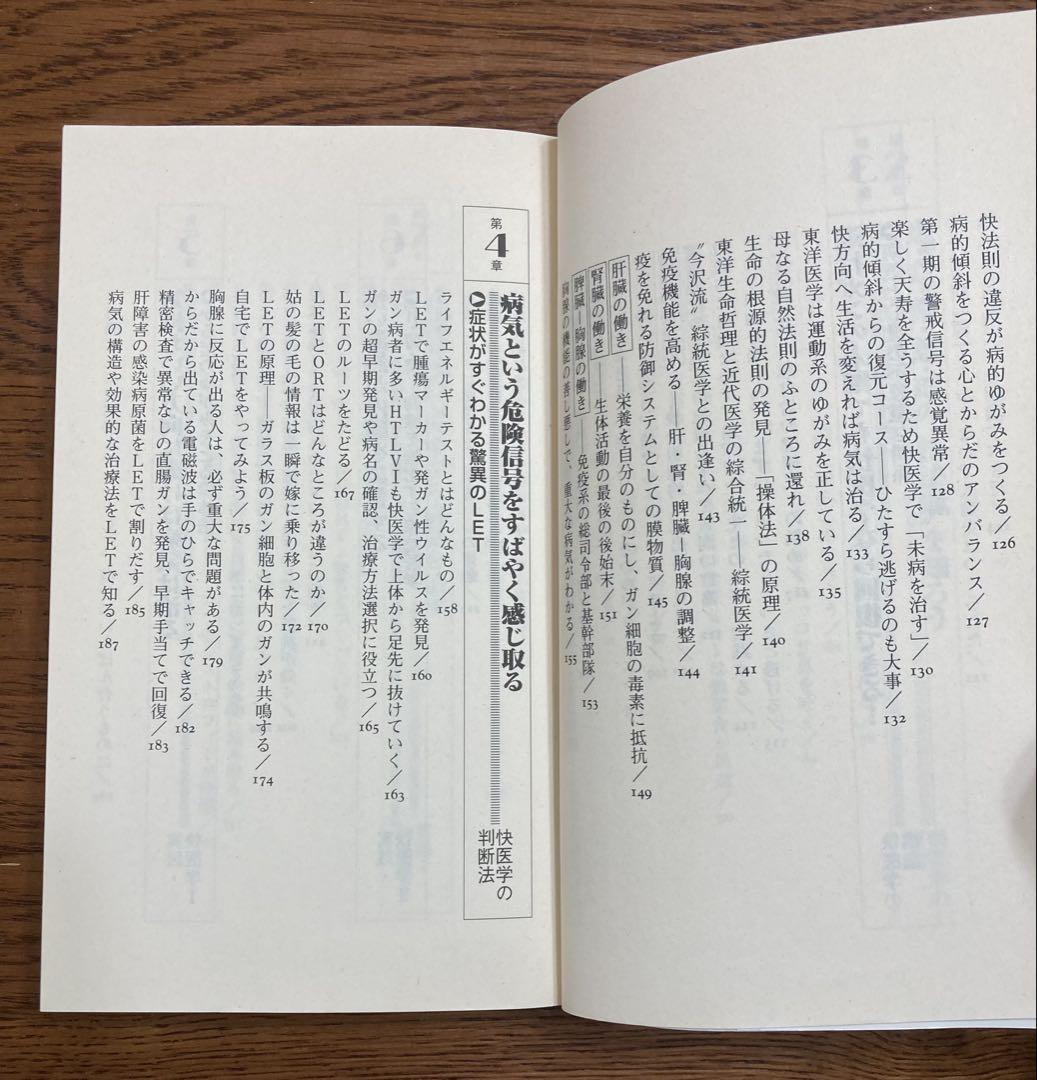 快法則の違反が病的ゆがみをつくる／126
病的傾斜をつくる心とからだのアンバランス／127
第一期の警戒信号は感覚異常／128
楽しく天寿を全うするため快医学で「未病を治す」／130
病的傾斜からの復元コース——ひたすら逃げるのも大事／132
快方向へ生活を変えれば病気は治る／133
東洋医学は運動系のゆがみを正している／135
母なる自然法則のふところに還れ／138
生命の根源的法則の発見——「操体法」の原理／140
東洋生命哲理と近代医学の綜合統一——綜統医学／141
〝今沢流〟綜統医学との出逢い／143
免疫機能を高める——肝・腎・脾臓—胸腺の調整／144
疫を免れる防御システムとしての膜物質／145
肝臓の働き——栄養を自分のものにし、ガン細胞の毒素に抵抗／149
腎臓の働き——生体活動の最後の後始末／151
脾臓—胸腺の働き——免疫系の総司令部と基幹部隊／153
胸腺の機能の善し悪しで、重大な病気がわかる／155
第4章
病気という危険信号をすばやく感じ取る
▶症状がすぐわかる驚異のLET
快医学の
判断法
ライフエネルギーテストとはどんなもの／158
LETで腫瘍マーカーや発ガン性ウイルスを発見／160
ガン病者に多いHTLVIも快医学で上体から足先に抜けていく／163
ガンの超早期発見や病名の確認、治療方法選択に役立つ／165
LETのルーツをたどる／167
LETとORTはどんなところが違うのか／170
姑の髪の毛の情報は一瞬で嫁に乗り移った／172
LETの原理——ガラス板のガン細胞と体内のガンが共鳴する／174
自宅でLETをやってみよう／175
胸腺に反応が出る人は、必ず重大な問題がある／179
からだから出ている電磁波は手のひらでキャッチできる／182
精密検査で異常なしの直腸ガンを発見、早期手当てで回復／183
肝障害の感染病原菌をLETで割りだす／185
病気の構造や効果的な治療法をLETで知る／187